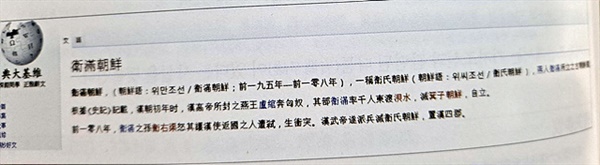 典大基維
文
衛滿朝鮮
衛滿朝鮮，（朝鮮語：위만조선 / 衛滿朝鮮；前一九五年—前一零八年），一稱衛氏朝鮮（朝鮮語：위씨조선 / 衛氏朝鮮），燕人衛滿所立
根據《史記》記載，漢朝初年时，漢高帝所封之燕王盧綰奔匈奴，其部衛滿率千人東渡浿水，滅箕子朝鮮，自立。
前一零八年，衛滿之孫衛右渠怒其護漢使返國之人遭弒，生衝突。漢武帝遂派兵滅衛氏朝鮮，置漢四郡。